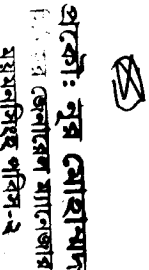 প্রকৌঃ নুর মোহাম্মদ
জেনারেল ম্যানেজার
ময়মনসিংহ পবিস-২